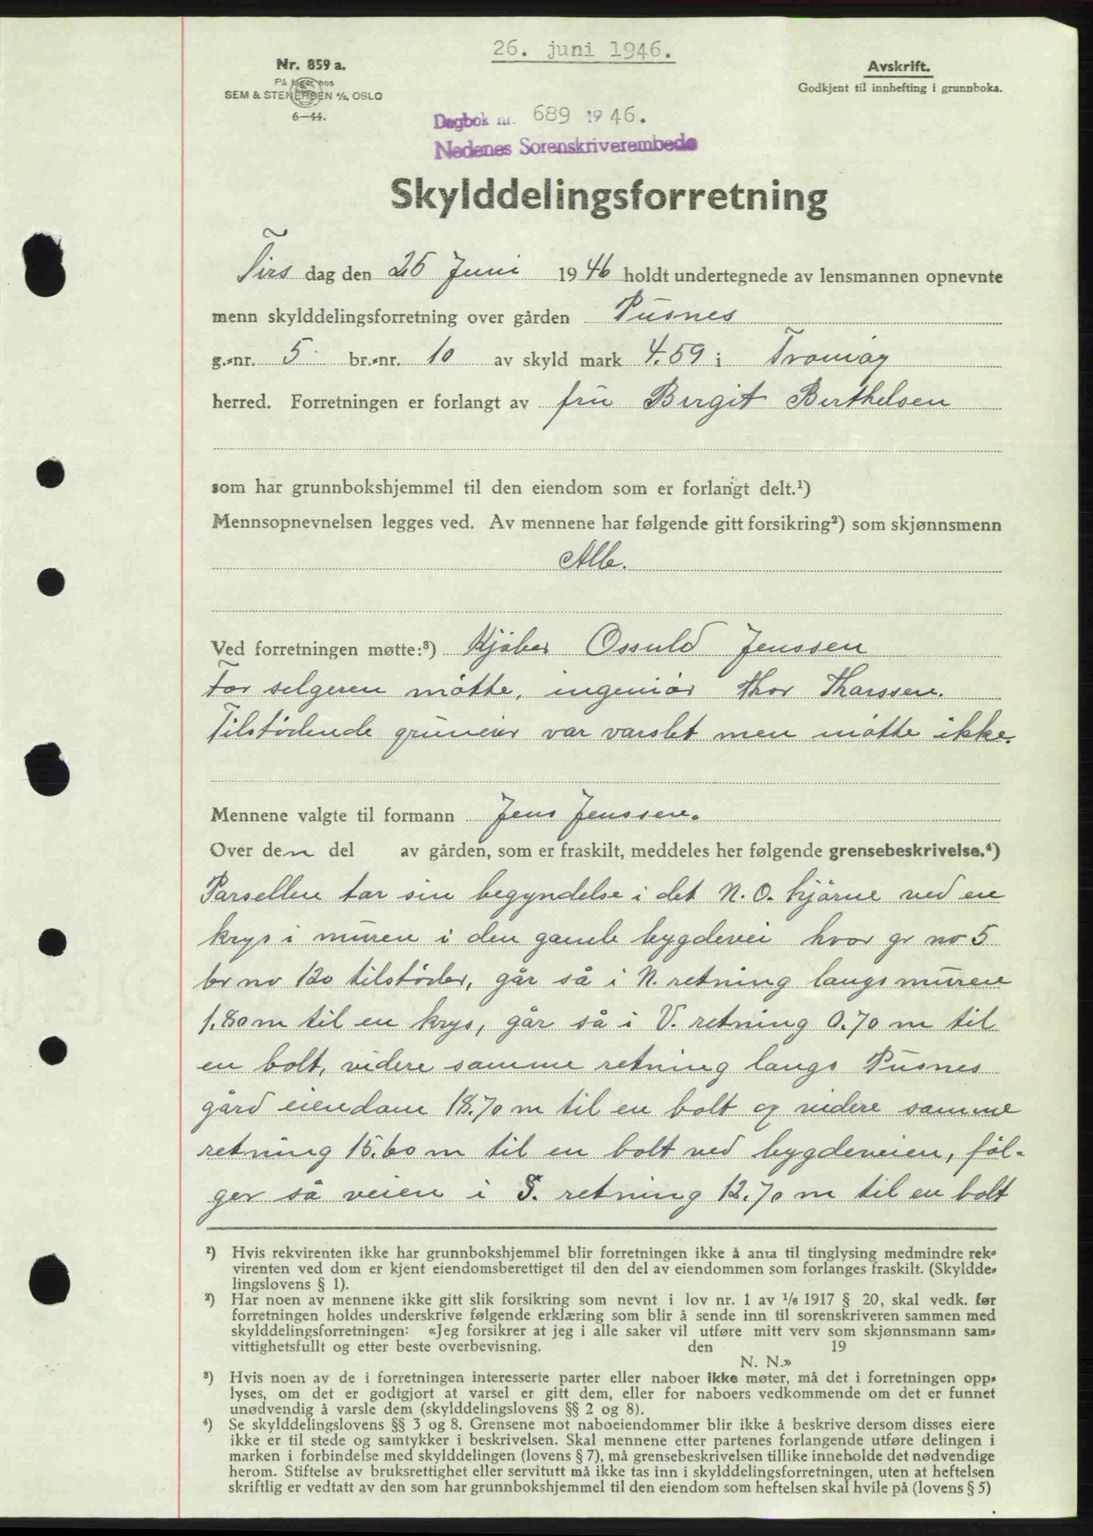 26. juni 1946.
Nr. 859 a.
På lager hos
SEM & STENERSEN A/S, OSLO
6—44.
Avskrift.
Godkjent til innhefting i grunnboka.
Dagbok nr. 689 1946.
Nedenes Sorenskriverembede
Skylddelingsforretning
Tirs dag den 25 Juni 1946 holdt undertegnede av lensmannen opnevnte
menn skylddelingsforretning over gården Pusnes
g.-nr. 5 br.-nr. 10 av skyld mark 4.59 i Tromøy
herred. Forretningen er forlangt av fru Birgit Berthelsen
som har grunnbokshjemmel til den eiendom som er forlangt delt.¹)
Mennsopnevnelsen legges ved. Av mennene har følgende gitt forsikring²) som skjønnsmenn
Alle.
Ved forretningen møtte:³) Kjøber Ossuld Jenssen
For selgeren møtte, ingeniør Thor Tharssen.
Tilstødende gruneier var varslet men møtte ikke.
Mennene valgte til formann Jens Jenssen.
Over den del av gården, som er fraskilt, meddeles her følgende grensebeskrivelse.⁴)
Parsellen tar sin begyndelse i det N. O. hjørne ved en
krys i muren i den gamle bygdevei hvor gr no 5
br no 120 tilstøder, går så i N. retning langs muren
1.80 m til en krys, går så i V. retning 0.70 m til
en bolt, videre samme retning langs Pusnes
gård eiendom 18.70 m til en bolt og videre samme
retning 15.60 m til en bolt ved bygdeveien, føl-
ger så veien i S. retning 12.70 m til en bolt
¹) Hvis rekvirenten ikke har grunnbokshjemmel blir forretningen ikke å anta til tinglysing medmindre rek-
virenten ved dom er kjent eiendomsberettiget til den del av eiendommen som forlanges fraskilt. (Skyldde-
lingslovens § 1).
²) Har noen av mennene ikke gitt slik forsikring som nevnt i lov nr. 1 av 1/6 1917 § 20, skal vedk. før
forretningen holdes underskrive følgende erklæring som blir å sende inn til sorenskriveren sammen med
skylddelingsforretningen: «Jeg forsikrer at jeg i alle saker vil utføre mitt verv som skjønnsmann sam-
vittighetsfullt og etter beste overbevisning. den 19
N. N.»
³) Hvis noen av de i forretningen interesserte parter eller naboer ikke møter, må det i forretningen opp-
lyses, om det er godtgjort at varsel er gitt dem, eller for naboers vedkommende om det er funnet
unødvendig å varsle dem (skylddelingslovens §§ 2 og 8).
⁴) Se skylddelingslovens §§ 3 og 8. Grensene mot naboeiendommer blir ikke å beskrive dersom disses eiere
ikke er til stede og samtykker i beskrivelsen. Skal mennene etter partenes forlangende utføre delingen i
marken i forbindelse med skylddelingen (lovens § 7), må grensebeskrivelsen tillike inneholde det nødvendige
herom. Stiftelse av bruksrettighet eller servitutt må ikke tas inn i skylddelingsforretningen, uten at heftelsen
skriftlig er vedtatt av den som har grunnbokshjemmel til den eiendom som heftelsen skal hvile på (lovens § 5)